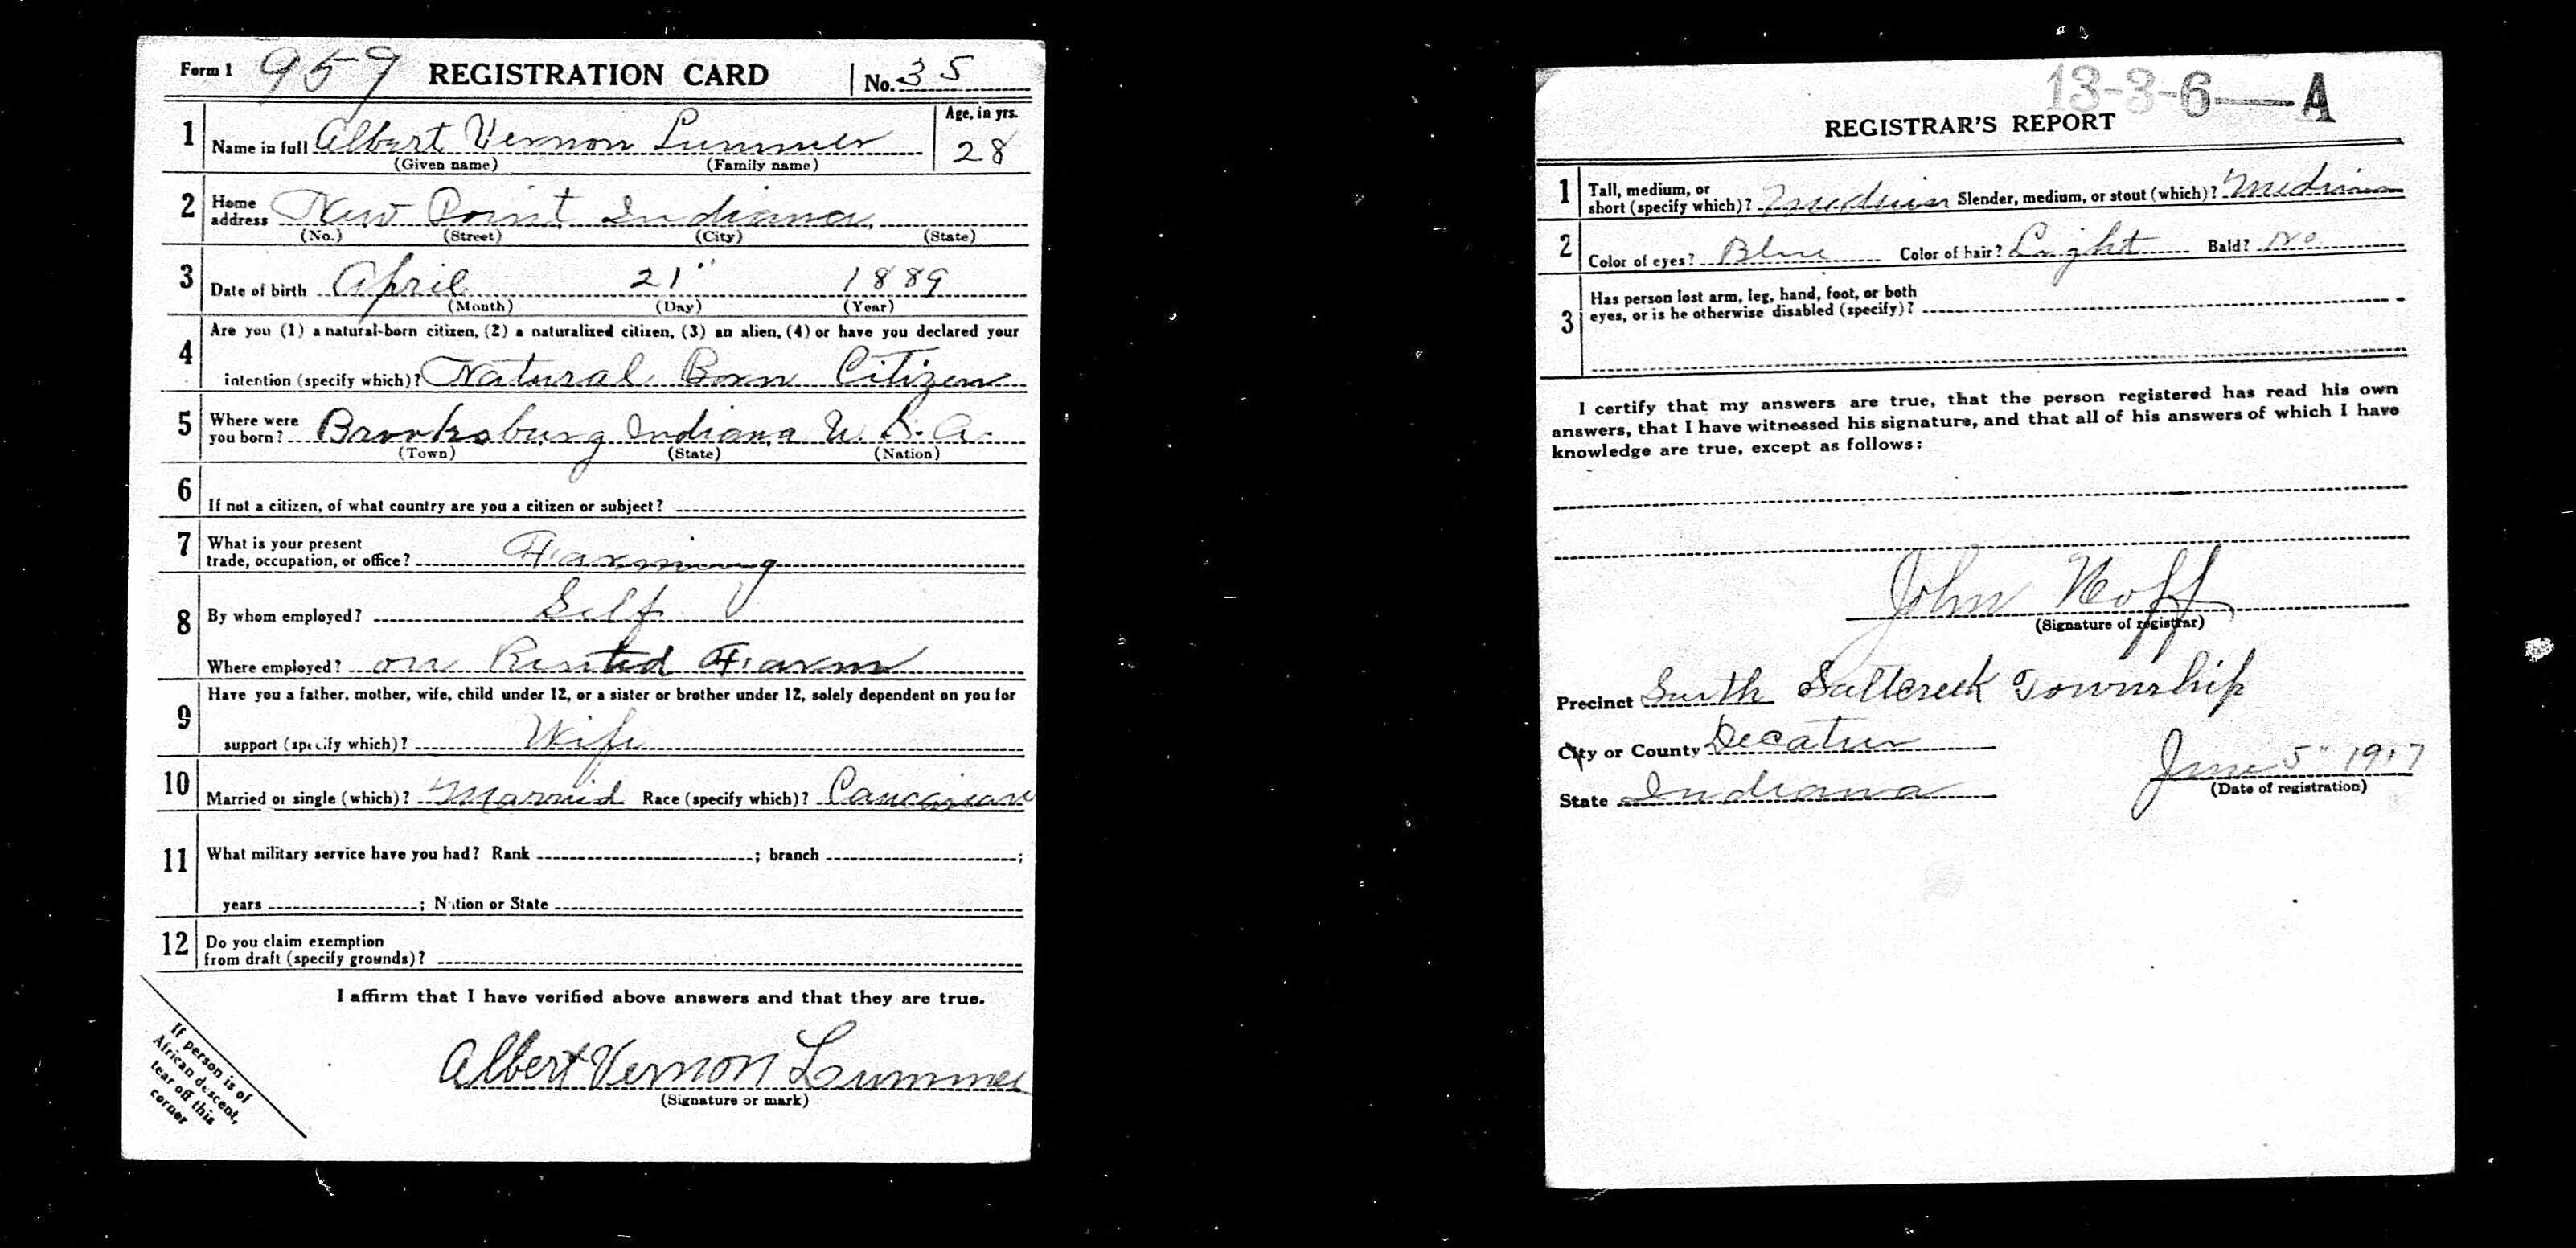 Form 1 959 REGISTRATION CARD No. 35
1 Name in full Albert Vernon Lummer Age, in yrs.
(Given name) (Family name) 28
2 Home address New Point, Indiana,
(No.) (Street) (City) (State)
3 Date of birth April 21" 1889
(Month) (Day) (Year)
4 Are you (1) a natural-born citizen, (2) a naturalized citizen, (3) an alien, (4) or have you declared your
intention (specify which)? Natural Born Citizen
5 Where were you born? Brooksburg Indiana U. S. A.
(Town) (State) (Nation)
6 If not a citizen, of what country are you a citizen or subject?
7 What is your present
trade, occupation, or office? Farming
8 By whom employed? Self
Where employed? on Rented Farm
9 Have you a father, mother, wife, child under 12, or a sister or brother under 12, solely dependent on you for
support (specify which)? Wife
10 Married or single (which)? Married Race (specify which)? Caucasian
11 What military service have you had? Rank ; branch ;
years ; Nation or State
12 Do you claim exemption
from draft (specify grounds)?
I affirm that I have verified above answers and that they are true.
Albert Vernon Lummer
(Signature or mark)
If person is of
African descent,
tear off this
corner
13-3-6-A
REGISTRAR'S REPORT
1 Tall, medium, or
short (specify which)? Medium Slender, medium, or stout (which)? Medium
2 Color of eyes? Blue Color of hair? Light Bald? No
3 Has person lost arm, leg, hand, foot, or both
eyes, or is he otherwise disabled (specify)?
I certify that my answers are true, that the person registered has read his own
answers, that I have witnessed his signature, and that all of his answers of which I have
knowledge are true, except as follows:
John Hoff
(Signature of registrar)
Precinct South Saltcreek Township
City or County Decatur
State Indiana June 5" 1917
(Date of registration)